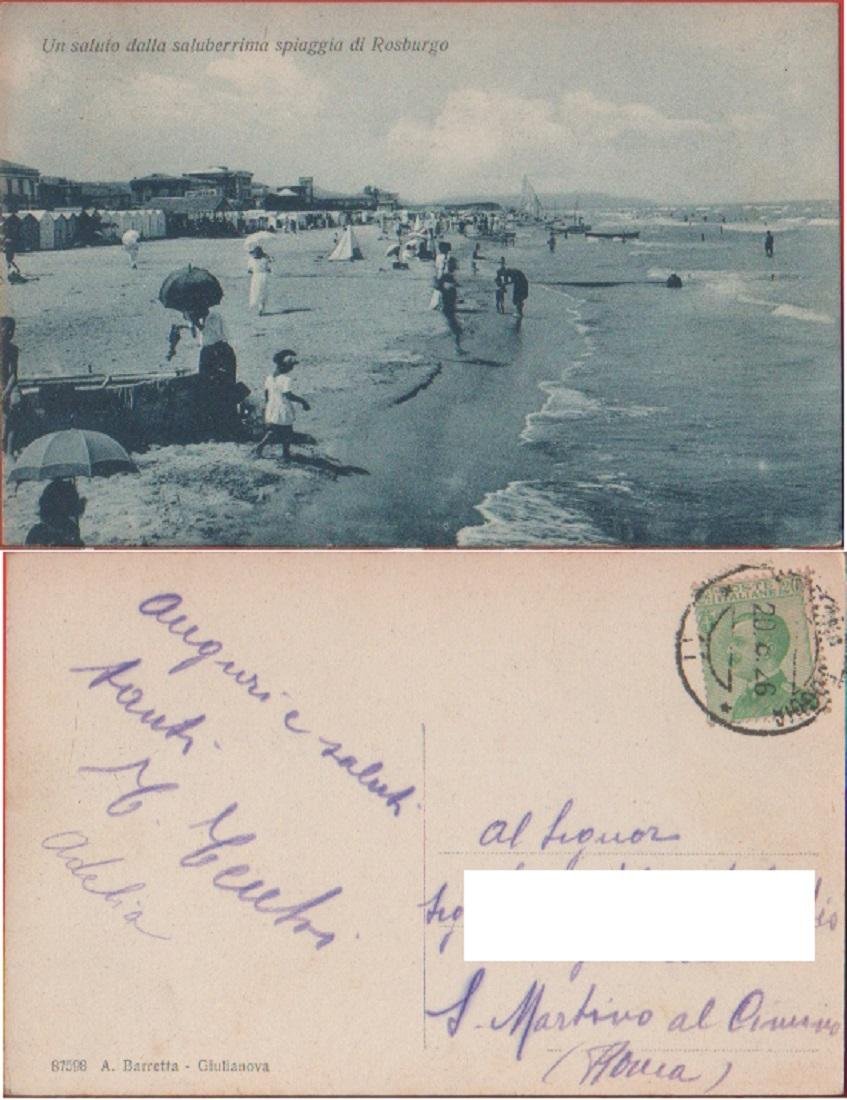 Un saluto dalla saluberrima spiaggia di Rosburgo
POSTE
ITALIANE
20.8.26
Auguri e saluti
tanti.
Adelia
Al Signor
Sig
S. Martino al Cimino
(Roma)
87598 A. Barretta - Giulianova